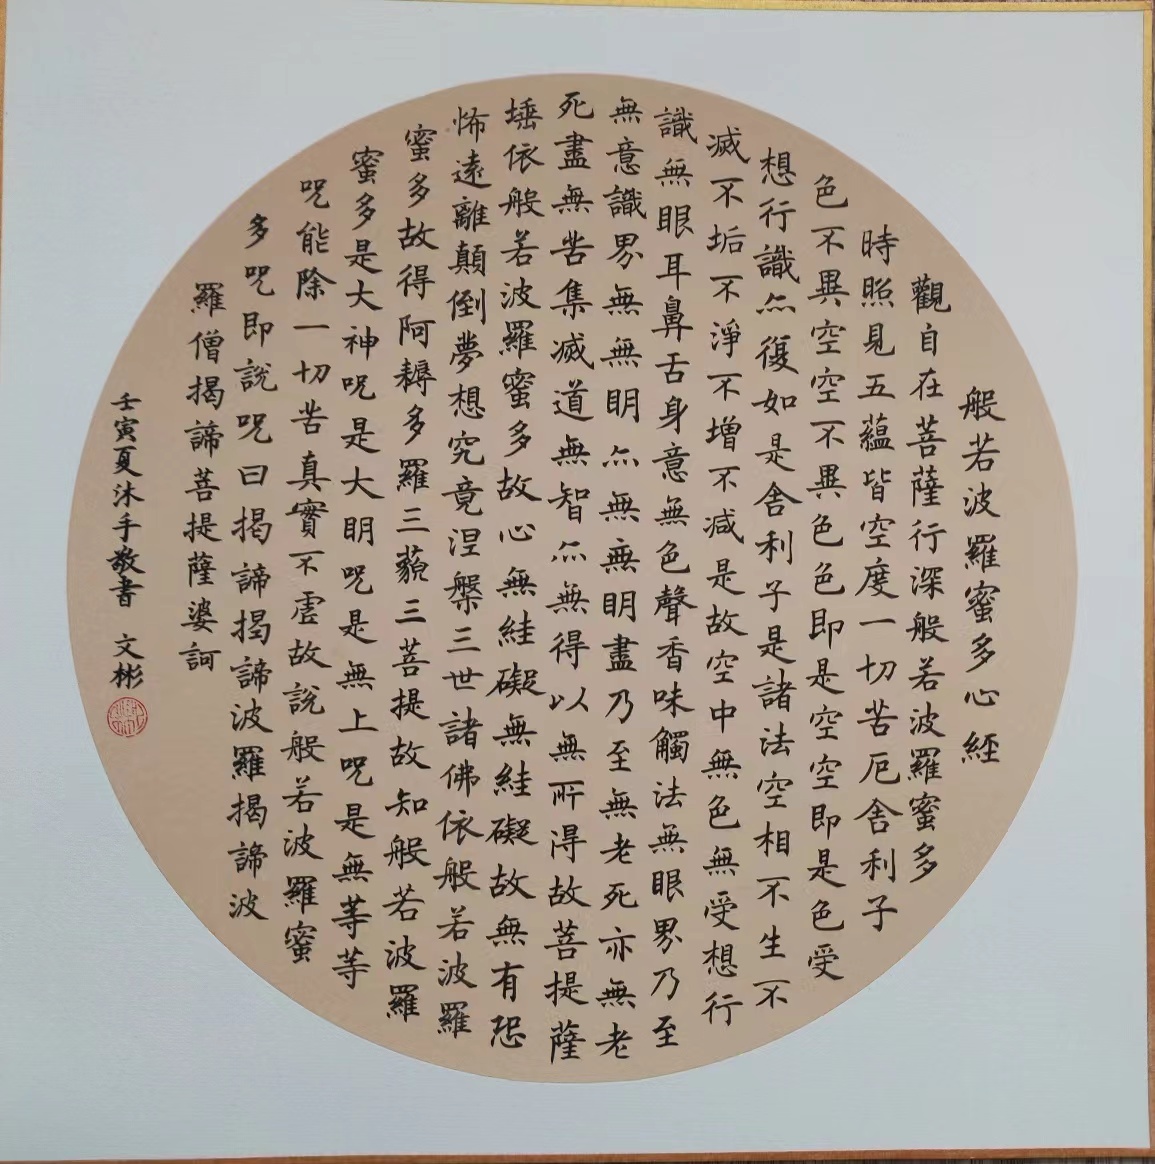 般若波羅蜜多心經
觀自在菩薩行深般若波羅蜜多
時照見五蘊皆空度一切苦厄舍利子
色不異空空不異色色即是空空即是色受
想行識亦復如是舍利子是諸法空相不生不
滅不垢不淨不增不減是故空中無色無受想行
識無眼耳鼻舌身意無色聲香味觸法無眼界乃至
無意識界無無明亦無無明盡乃至無老死亦無老
死盡無苦集滅道無智亦無得以無所得故菩提薩
埵依般若波羅蜜多故心無絓礙無絓礙故無有恐
怖遠離顛倒夢想究竟涅槃三世諸佛依般若波羅
蜜多故得阿耨多羅三藐三菩提故知般若波羅
蜜多是大神咒是大明咒是無上咒是無等等
咒能除一切苦真實不虛故說般若波羅蜜
多咒即說咒曰揭諦揭諦波羅揭諦波
羅僧揭諦菩提薩婆訶
壬寅夏沐手敬書 文彬